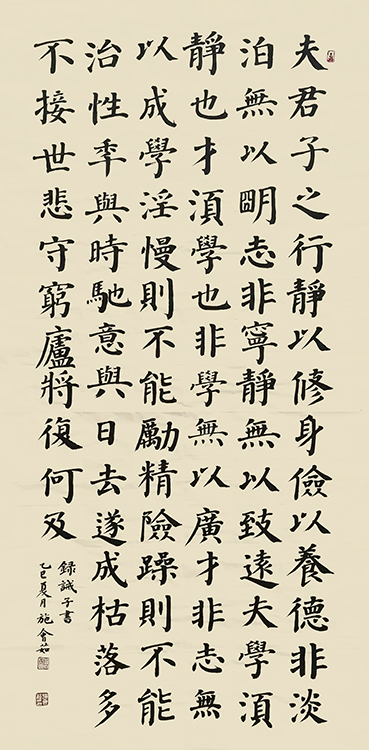 夫君子之行靜以修身儉以養德非淡
泊無以明志非寧靜無以致遠夫學須
靜也才須學也非學無以廣才非志無
以成學淫慢則不能勵精險躁則不能
治性年與時馳意與日去遂成枯落多
不接世悲守窮廬將復何及
錄誡子書
乙巳夏月施會茹